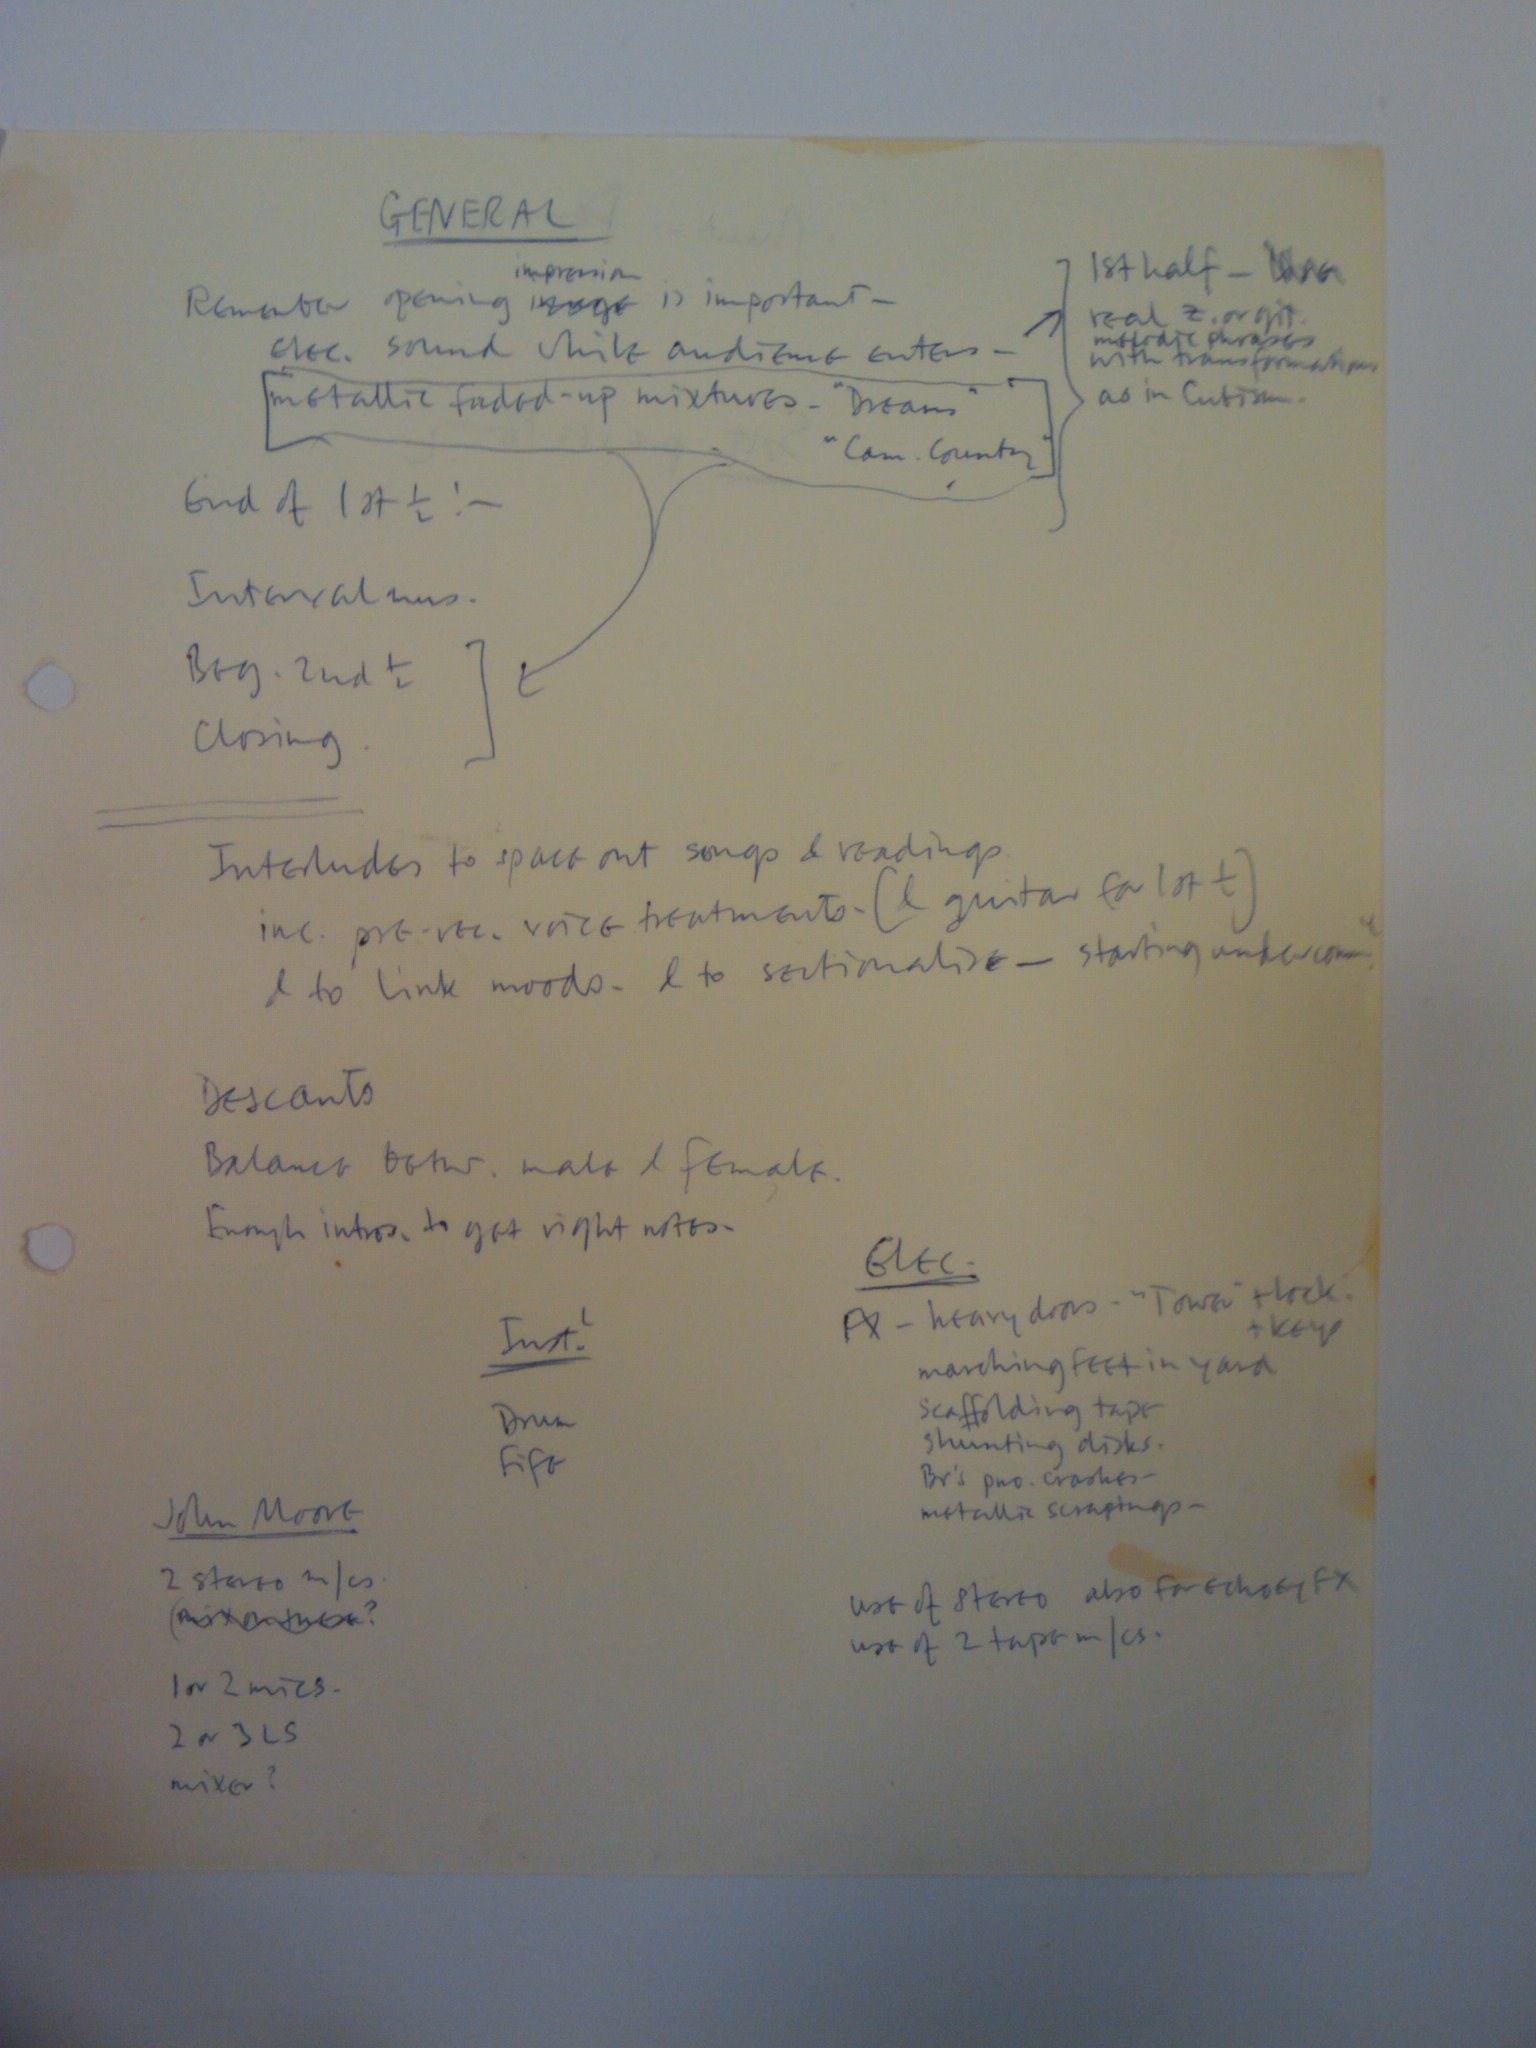 GENERAL
impression
Remember opening image is important -
elec. sound while audience enters -
metallic faded-up mixtures - "Dreams"
"Cam. Country"
1st half -
real z. or git.
melodic phrases
with transformations
as in Cubism.
End of 1st ½ : -
Interval mus.
Beg. 2nd ½
Closing.
Interludes to space out songs & readings.
inc. pre-rec. voice treatments - (& guitar for 1st ½)
& to link moods - & to sectionalise - starting under
Descants
Balance betw. male & female.
Enough intros. to get right notes -
Elec.
FX - heavy doors - "Tower" + lock.
+ keys
marching feet in yard
scaffolding tape
shunting disks.
Br's pno. crashes -
metallic scrapings -
Inst.
Drum
Fife
John Moore
2 stereo m/cs.
(mix on these?
1 or 2 mics -
2 or 3 LS
mixer?
use of stereo also for echoey FX
use of 2 tape m/cs.